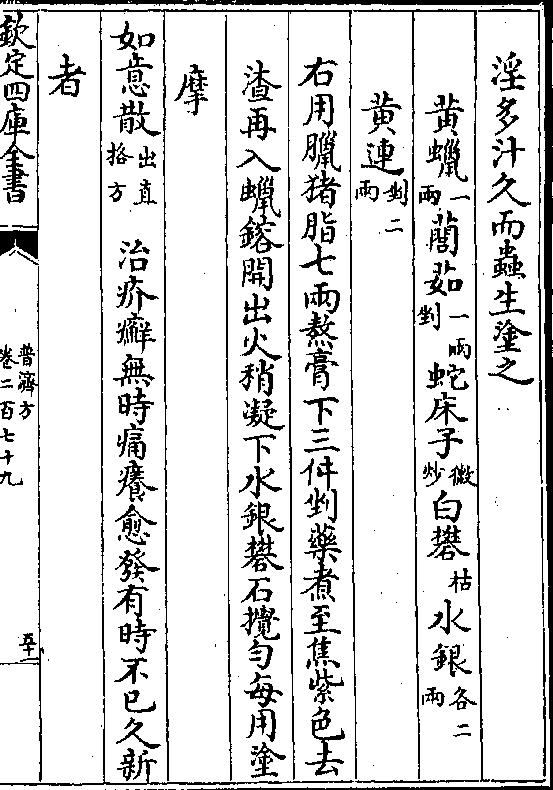 淫多汁久而蟲生塗之
黄蠟一兩䕡茹一兩剉蛇床子微炒白礬枯水銀各二兩
黄連剉二兩
右用臘猪脂七兩熬膏下三件剉藥煮至焦紫色去
渣再入蠟鎔開出火稍凝下水銀礬石攪勻每用塗
摩
如意散出直指方 治疥癬無時痛癢愈發有時不已久新
者
欽定四庫全書
普濟方
卷二百七十九
五十一